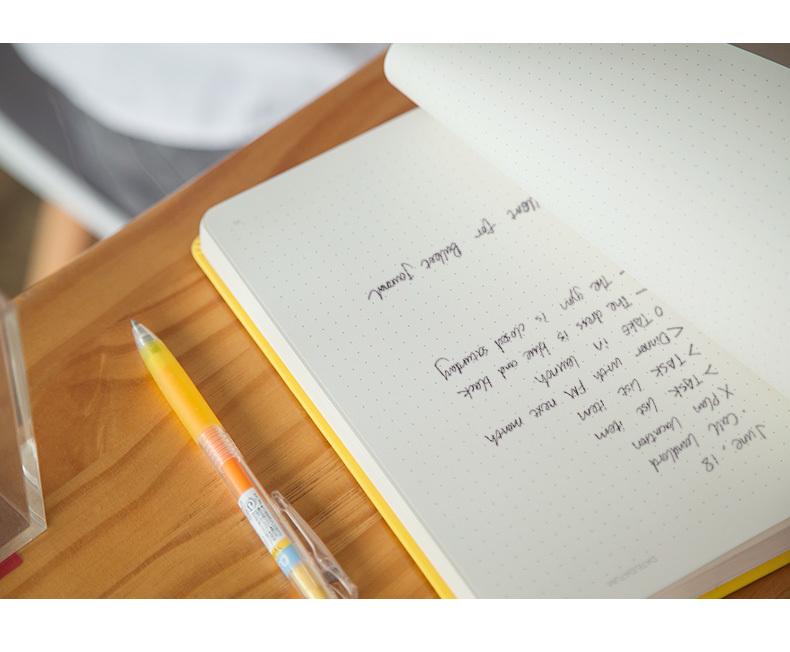 DATE/DATUM:
June . 18
· Call Landlord
X Plan Location
> TASK List item
> TASK List item
< Dinner with FM next month
O TAKE in launch.
— The dress is blue and black
- The gym is closed saturday
for Bullet Journal.